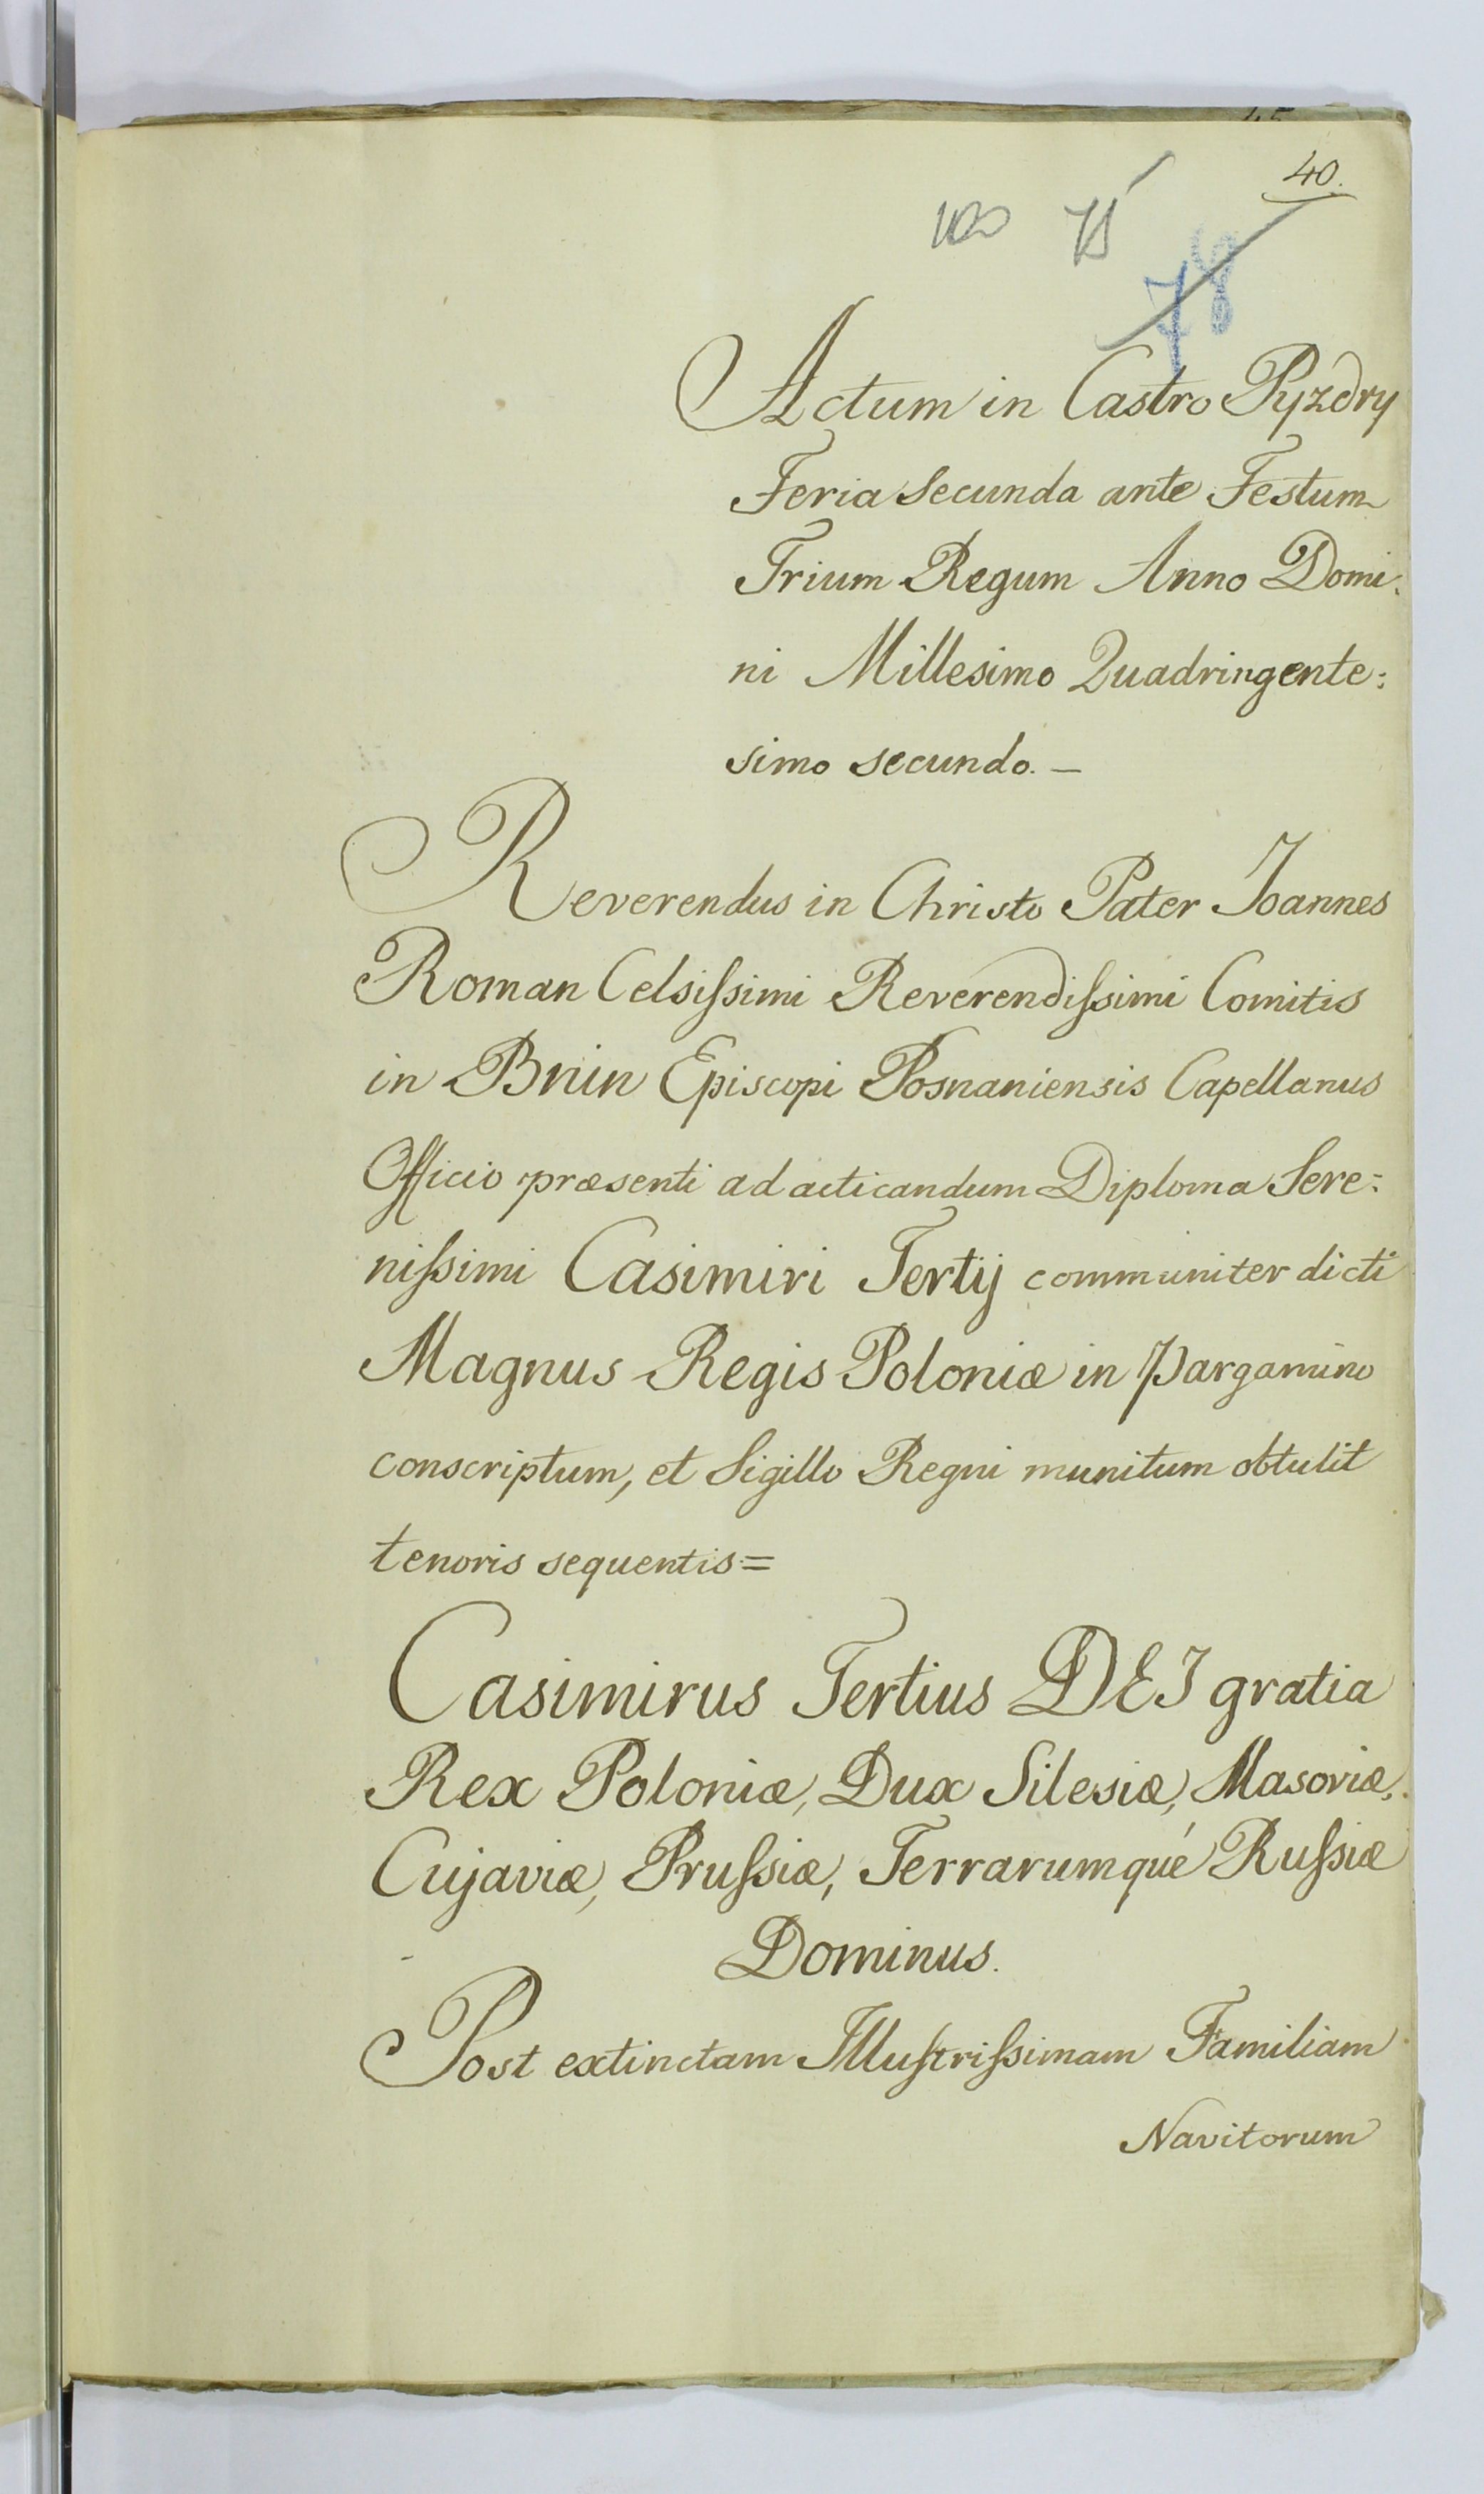 40.
100 75
78
Actum in Castro Pyzdry
Feria Secunda ante Festum
Trium Regum Anno Domi:
ni Millesimo Quadringente:
simo secundo. —
Reverendus in Christo Pater Joannes
Roman Celsiſsimi Reverendiſsimi Comitis
in Bnin Episcopi Posnaniensis Capellanus
Officio præsenti ad acticandum Diploma Sere:
niſsimi Casimiri Tertij communiter dicti
Magnus Regis Poloniæ in Pargamino
conscriptum, et Sigillo Regni munitum obtulit
tenoris sequentis =
Casimirus Tertius DEI gratia
Rex Poloniæ, Dux Silesiæ, Masoviæ,
Cujaviæ, Pruſsiæ, Terrarumqué Ruſsiæ
Dominus.
Post extinctam Illuſtriſsimam Familiam
Navitorum